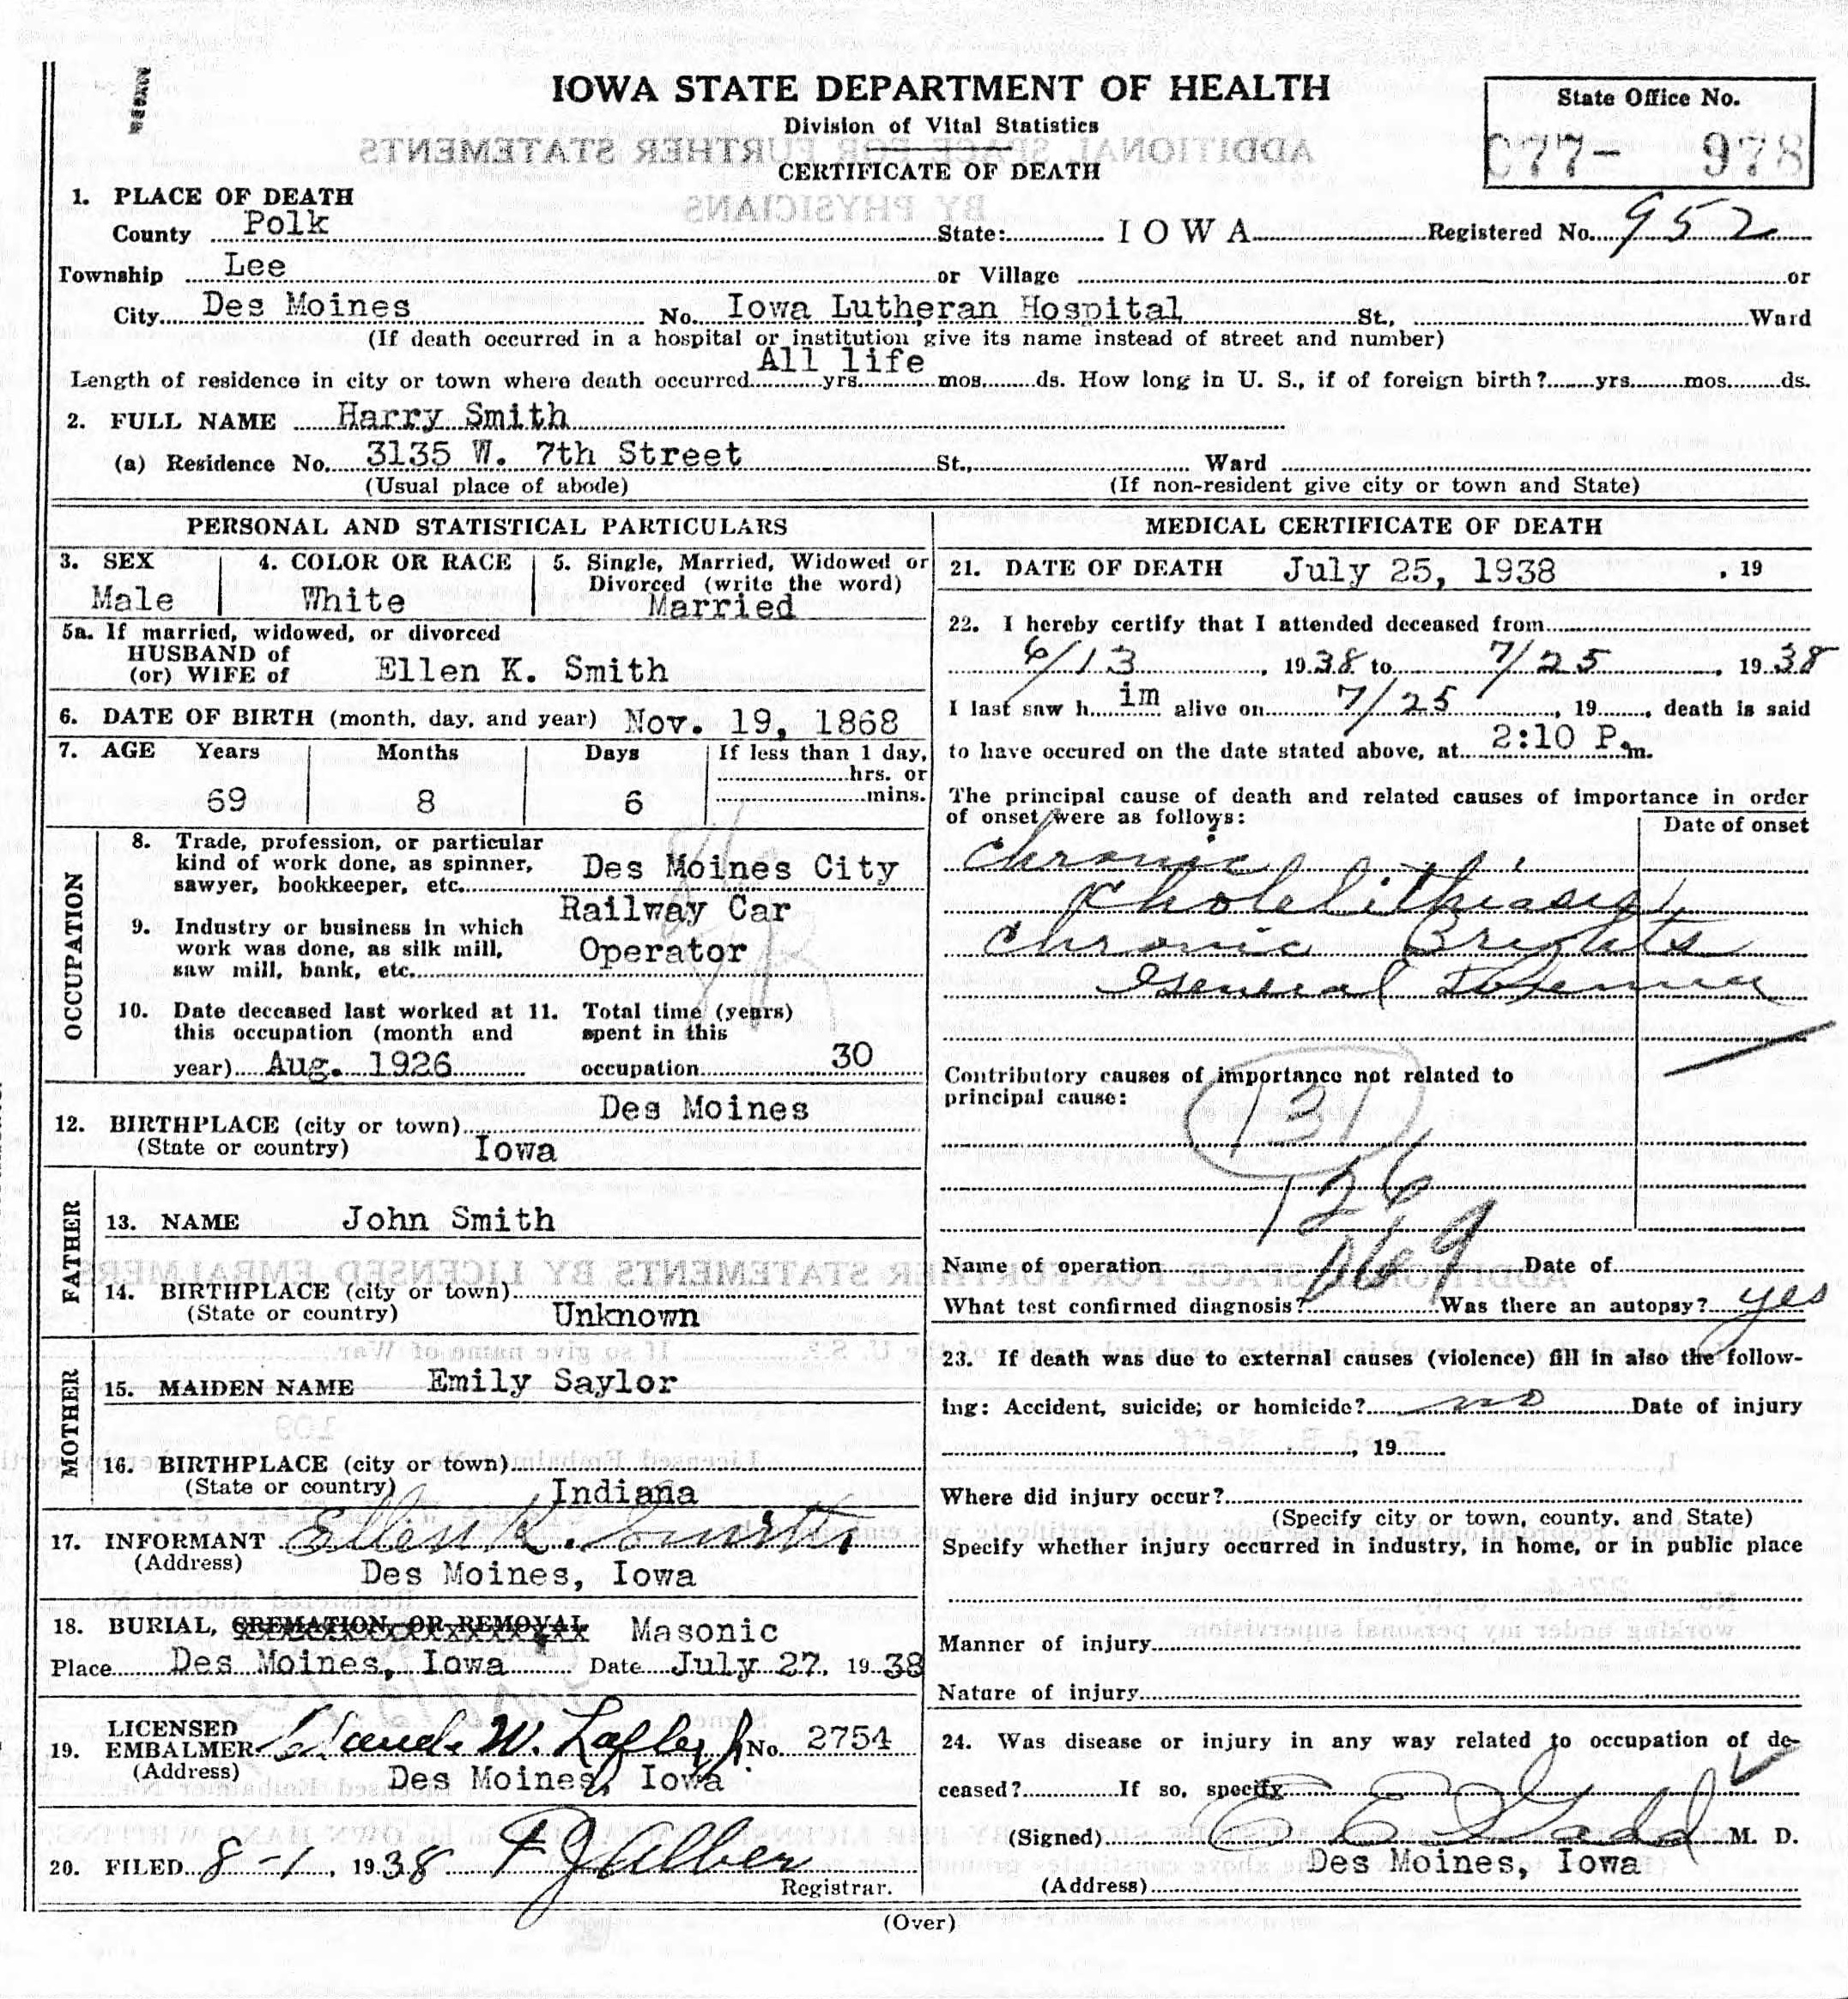 IOWA STATE DEPARTMENT OF HEALTH
Division of Vital Statistics
CERTIFICATE OF DEATH
State Office No.
C77- 978
1. PLACE OF DEATH
County Polk State: IOWA Registered No. 952
Township Lee or Village or
City Des Moines No. Iowa Lutheran Hospital St., Ward
(If death occurred in a hospital or institution give its name instead of street and number)
Length of residence in city or town where death occurred All life yrs. mos. ds. How long in U. S., if of foreign birth? yrs. mos. ds.
2. FULL NAME Harry Smith
(a) Residence No. 3135 W. 7th Street St., Ward
(Usual place of abode) (If non-resident give city or town and State)
PERSONAL AND STATISTICAL PARTICULARS
3. SEX
Male
4. COLOR OR RACE
White
5. Single, Married, Widowed or
Divorced (write the word)
Married
5a. If married, widowed, or divorced
HUSBAND of
(or) WIFE of Ellen K. Smith
6. DATE OF BIRTH (month, day, and year) Nov. 19, 1868
7. AGE Years Months Days If less than 1 day,
hrs. or
69 8 6 mins.
OCCUPATION
8. Trade, profession, or particular
kind of work done, as spinner,
sawyer, bookkeeper, etc. Des Moines City
Railway Car
9. Industry or business in which
work was done, as silk mill, Operator
saw mill, bank, etc.
10. Date deceased last worked at
this occupation (month and
year) Aug. 1926
11. Total time (years)
spent in this
occupation 30
12. BIRTHPLACE (city or town) Des Moines
(State or country) Iowa
FATHER
13. NAME John Smith
14. BIRTHPLACE (city or town)
(State or country) Unknown
MOTHER
15. MAIDEN NAME Emily Saylor
16. BIRTHPLACE (city or town)
(State or country) Indiana
17. INFORMANT Ellen K. Smith
(Address) Des Moines, Iowa
18. BURIAL, CREMATION OR REMOVAL Masonic
Place Des Moines, Iowa Date July 27, 1938
19. LICENSED
EMBALMER W. No. 2754
(Address) Des Moines, Iowa
20. FILED 8-1, 1938 Alber
Registrar.
MEDICAL CERTIFICATE OF DEATH
21. DATE OF DEATH July 25, 1938 , 19
22. I hereby certify that I attended deceased from
6/13, 1938 to 7/25, 1938
I last saw him alive on 7/25, 19 , death is said
to have occured on the date stated above, at 2:10 P.m.
The principal cause of death and related causes of importance in order
of onset were as follows: Date of onset
Chronic
Cholelithiasis
Chronic Brights
General
Contributory causes of importance not related to
principal cause:
131
126
Name of operation Date of
What test confirmed diagnosis? Was there an autopsy? yes
23. If death was due to external causes (violence) fill in also the follow-
ing: Accident, suicide; or homicide? no Date of injury
, 19
Where did injury occur?
(Specify city or town, county, and State)
Specify whether injury occurred in industry, in home, or in public place
Manner of injury
Nature of injury
24. Was disease or injury in any way related to occupation of de-
ceased? If so, specify
(Signed) Gadd M. D.
Des Moines, Iowa
(Address)
(Over)